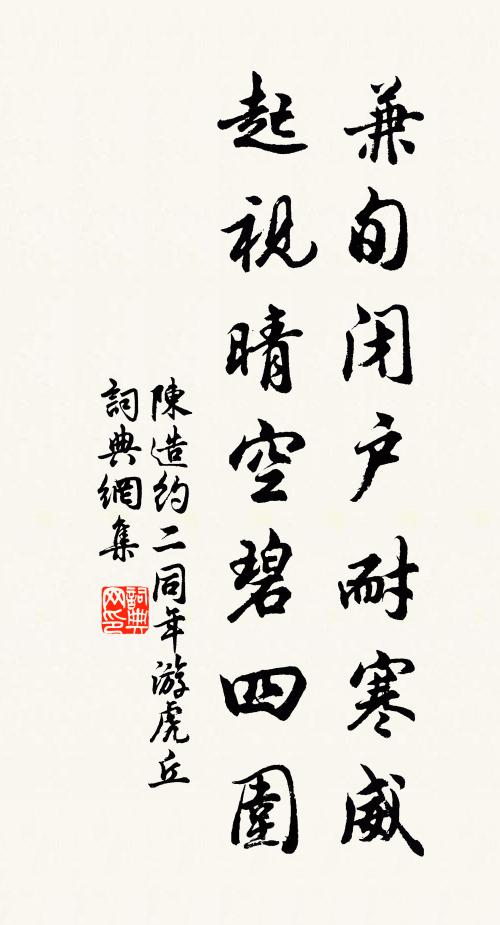 兼旬闭户耐寒威
起視晴空碧四圍
陳造約二同年游虎丘
詞典網集
詞典
网印